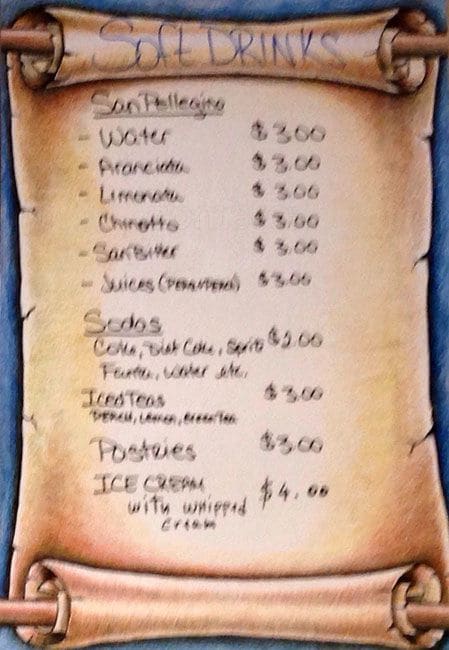 Soft DRINKS
San Pellegrino
- Water $3.00
- Aranciata $3.00
- Limonata $3.00
- Chinotto $3.00
- SanBitter $3.00
- Juices (PEAR/PEACH) $3.00
Sodas $2.00
Coke, Diet Coke, Sprite
Fanta, Water etc.
Iced Teas $3.00
PEACH, Lemon, Green Tea
Pastries $3.00
ICE CREAM $4.00
with whipped
cream